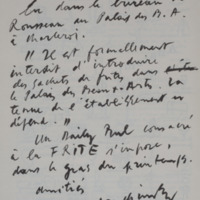 lu dans le bureau de
Rousseau au Palais des B.A.
à Charleroi.
" Il est formellement
interdit d'introduire
des sachets de frites dans
le Palais des Beaux-Arts. La
tenue de l'établissement en
dépend. "
Un Daily Bul consacré
à la FRITE s'impose,
dans le gras du printemps.
amitiés